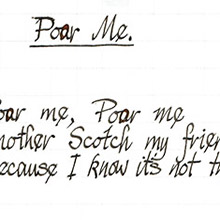 Poar Me.
oar me, Poar me
nother Scotch my frien
ecause I know it's not t